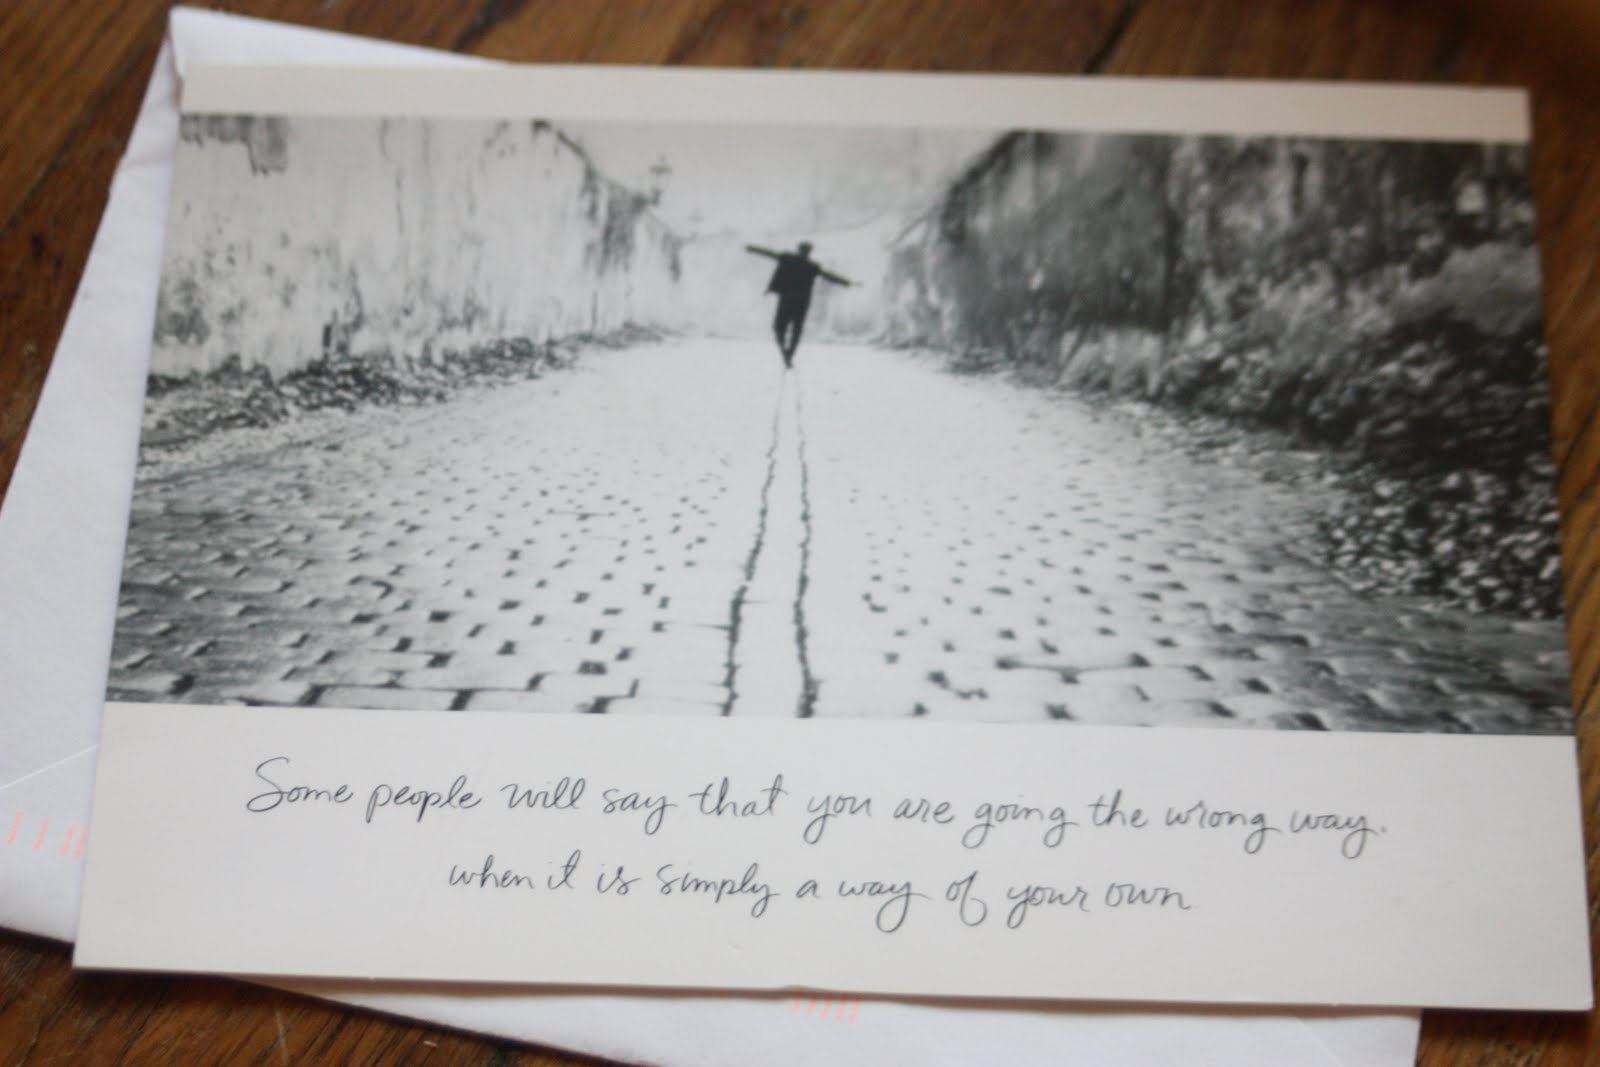 Some people will say that you are going the wrong way.
when it is simply a way of your own